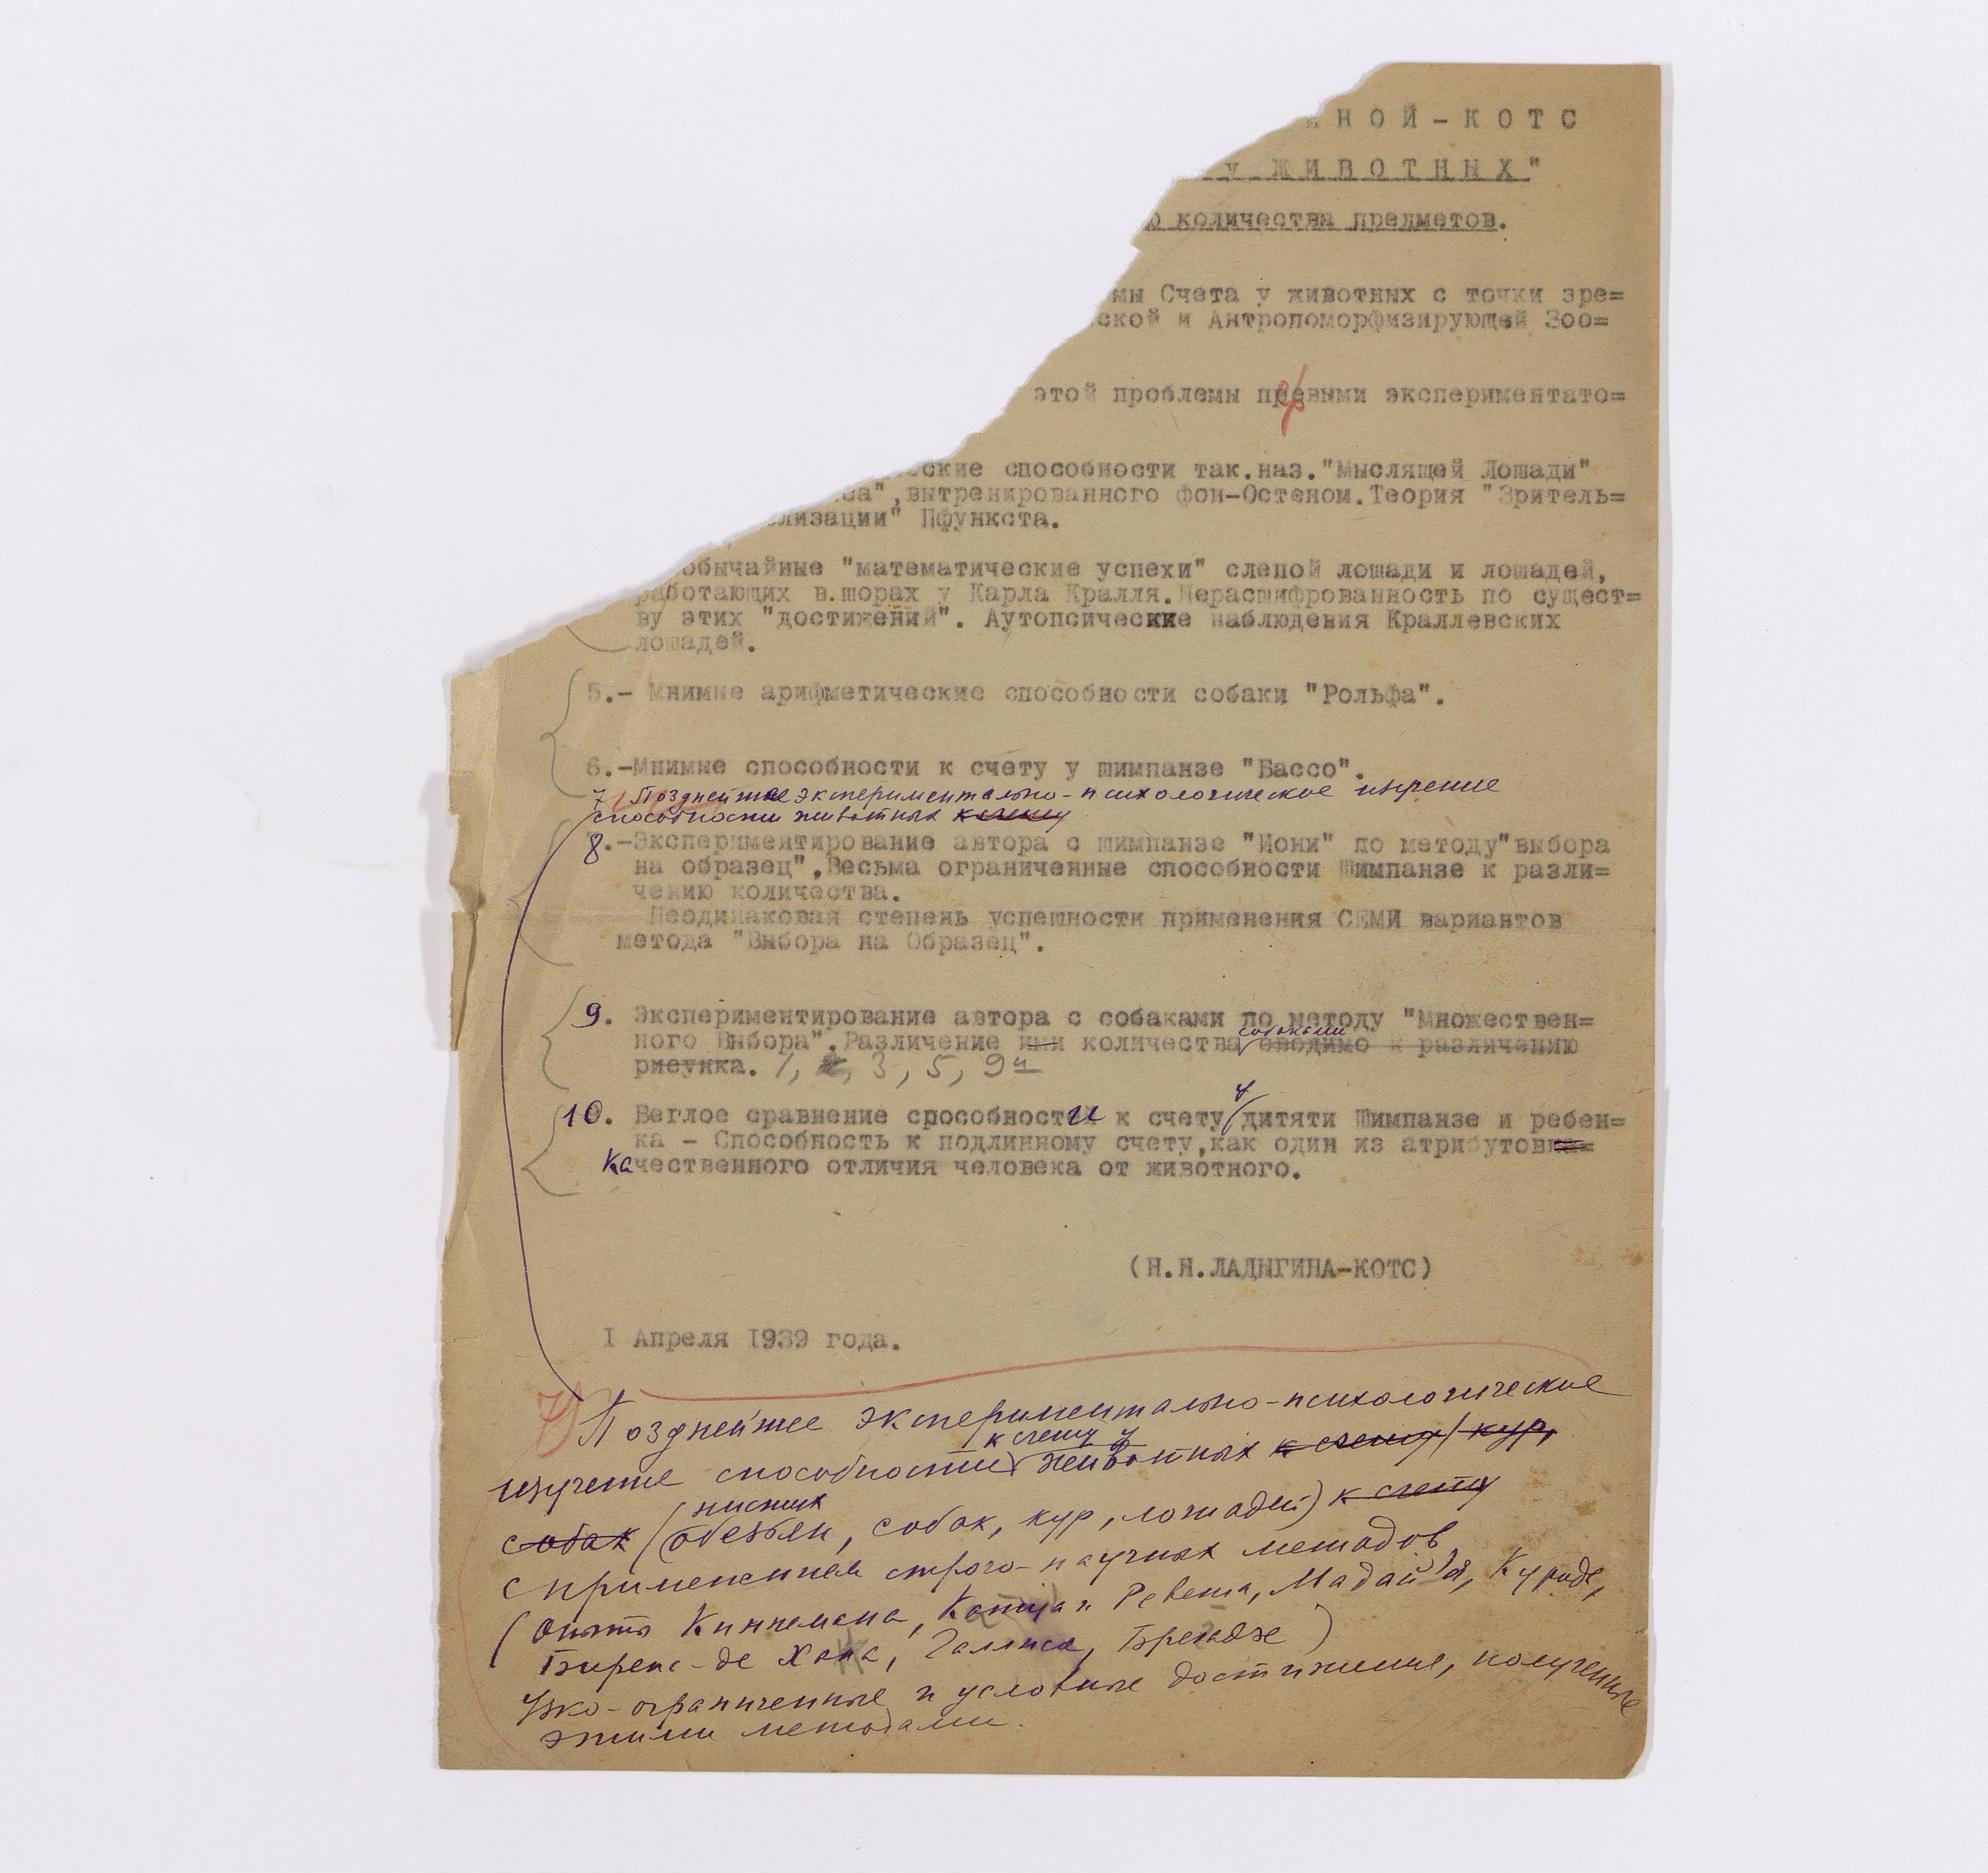 НОЙ-КОТС
У ЖИВОТНЫХ"
количества предметов.
мы Счета у животных с точки зре=
ской и Антропоморфизирующей Зоо=
этой проблемы превыми экспериментато=
ские способности так.наз."Мыслящей Лошади"
са",вытренированного фон-Остеном.Теория "Зритель=
лизации" Пфункста.
обычайные "математические успехи" слепой лошади и лошадей,
работающих в.шорах у Карла Кралля.Нерасшифрованность по сущест=
ву этих "достижений". Аутопсические наблюдения Краллевских
лошадей.
5.- Мнимые арифметические способности собаки "Рольфа".
6.-Мнимые способности к счету у шимпанзе "Бассо".
7. Позднейшее экспериментально-психологическое изучение
способности животных к счету
8.-Экспериментирование автора с шимпанзе "Иони" по методу"выбора
на образец".Весьма ограниченные способности Шимпанзе к разли=
чению количества.
Неодинаковая степень успешности применения СЕМИ вариантов
метода "Выбора на Образец".
9. Экспериментирование автора с собаками по методу "Множествен=
собаками
ного Выбора".Различение ими количества сводимо к различению
рисунка. 1, 2, 3, 5, 9
у
10. Беглое сравнение способности к счету дитяти Шимпанзе и ребен=
ка - Способность к подлинному счету,как один из атрибутов
качественного отличия человека от животного.
(Н.Н.ЛАДЫГИНА-КОТС)
I Апреля 1939 года.
7) Позднейшее экспериментально-психологические
к счету у
изучение способности животных к счету (кур,
низших
собак (обезьян, собак, кур, лошадей) к счету
с применением строго-научных методов
(Опыты Киннемана, Катца и Ревеша, Мадай'я, Куроде,
Биренс-де Хана, Галлиса, )
Узко-ограниченные и условные достижения, полученные
этими методами.